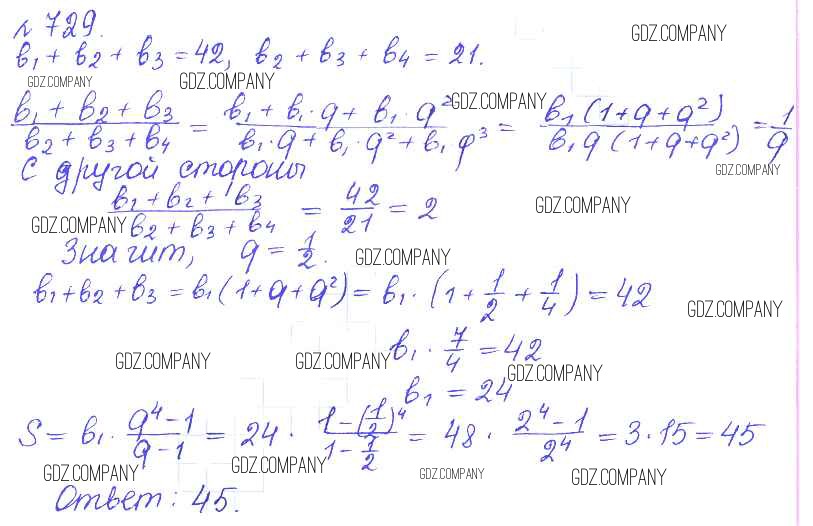 № 729.
GDZ.COMPANY
b₁ + b₂ + b₃ = 42, b₂ + b₃ + b₄ = 21.
GDZ.COMPANY GDZ.COMPANY
(b₁ + b₂ + b₃)/(b₂ + b₃ + b₄) = (b₁ + b₁·q + b₁·q²)/(b₁·q + b₁·q² + b₁q³) = (b₁(1+q+q²))/(b₁q(1+q+q²)) = 1/q
GDZ.COMPANY
С другой стороны
GDZ.COMPANY
(b₁ + b₂ + b₃)/(b₂ + b₃ + b₄) = 42/21 = 2
GDZ.COMPANY GDZ.COMPANY
Значит, q = 1/2.
GDZ.COMPANY
b₁+b₂+b₃ = b₁(1+q+q²) = b₁·(1 + 1/2 + 1/4) = 42
GDZ.COMPANY
b₁ · 7/4 = 42
GDZ.COMPANY GDZ.COMPANY GDZ.COMPANY
b₁ = 24
S = b₁ · (q⁴−1)/(q−1) = 24 · (1−(1/2)⁴)/(1−1/2) = 48 · (2⁴−1)/2⁴ = 3·15 = 45
GDZ.COMPANY GDZ.COMPANY GDZ.COMPANY GDZ.COMPANY
Ответ: 45.